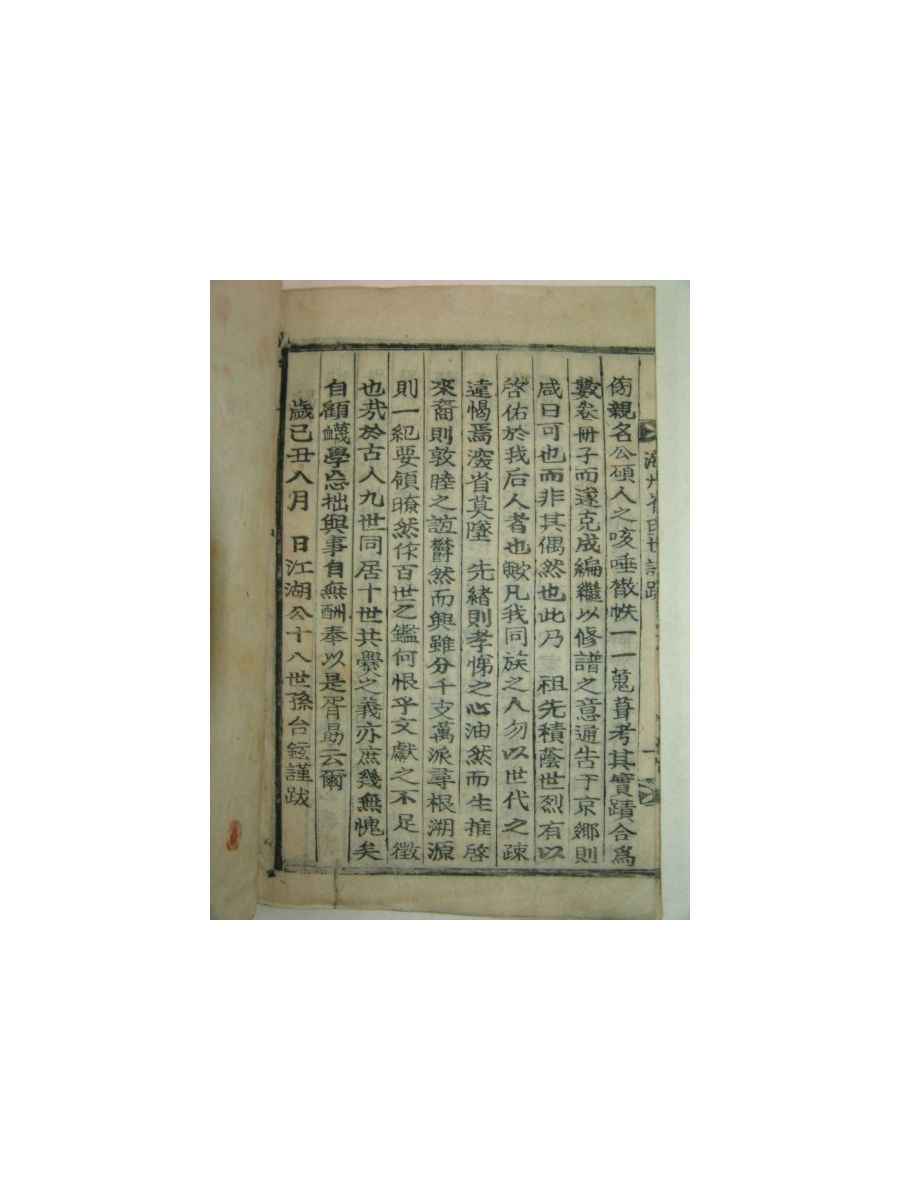 海州崔氏世
傍親名公碩人之咳唾散帙一一蒐葺考其實蹟合爲
數卷册子而遂克成編繼以修譜之意通告于京鄕則
咸曰可也而非其偶然也此乃 祖先積蔭世烈有以
啓佑於我后人者也歟凡我同族之人勿以世代之疎
遠愒焉深省莫墜 先緖則孝悌之心油然而生推啓
來裔則敦睦之誼欝然而興雖分千支萬派尋根溯源
則一紀要領暸然作百世之鑑何恨乎文獻之不足徵
也哉於古人九世同居十世共爨之義亦庶幾無愧矣
自顧蔑學忘拙與事自無酬奉以是胥勗云爾
歲己丑八月 日江湖公十八世孫台鉉謹跋